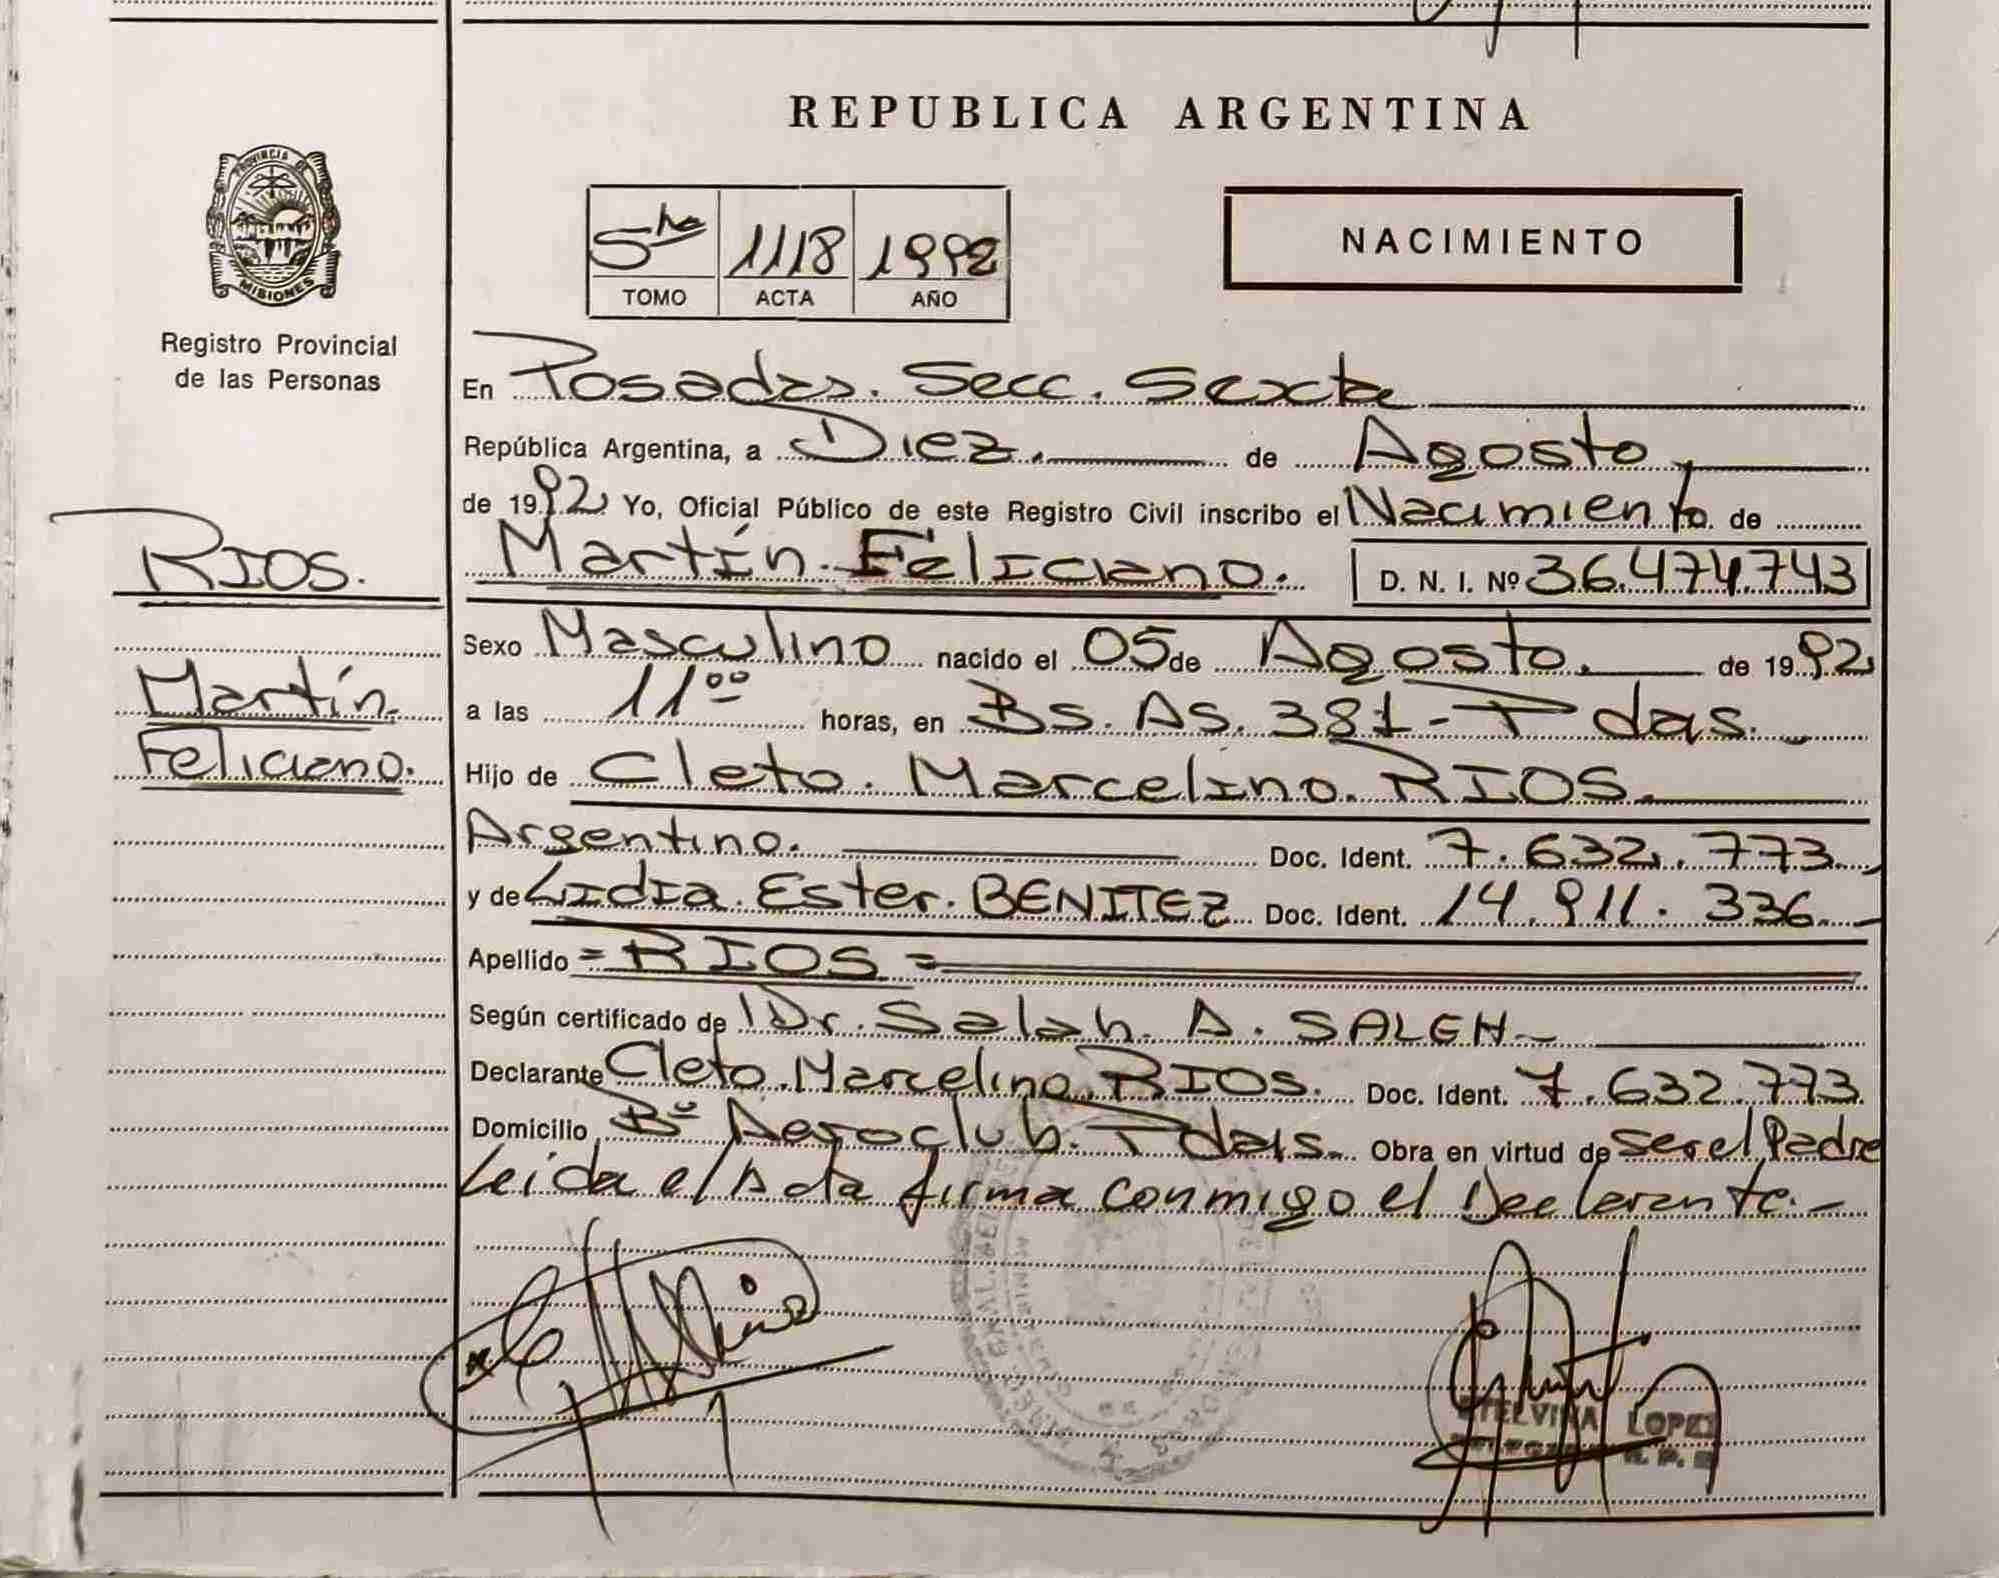 REPUBLICA ARGENTINA
PROVINCIA DE
MISIONES
Registro Provincial
de las Personas
5ta 1118 1992
TOMO ACTA AÑO
NACIMIENTO
En Posadas. Secc. Sexta
República Argentina, a Diez. de Agosto
de 1992 Yo, Oficial Público de este Registro Civil inscribo el Nacimiento de
Martín. Feliciano. D. N. I. Nº 36.474.743
RIOS.
Martín.
Feliciano.
Sexo Masculino nacido el 05 de Agosto. de 1992
a las 11 00 horas, en Bs. As. 381 - Pdas.
Hijo de Cleto. Marcelino. RIOS.
Argentino. Doc. Ident. 7.632.773
y de Lidia. Ester. BENITEZ Doc. Ident. 14.911.336
Apellido = RIOS =
Según certificado de Dr. Salah. A. SALEH
Declarante Cleto. Marcelino. RIOS. Doc. Ident. 7.632.773
Domicilio Bº Aeroclub. Pdas. Obra en virtud de ser el Padre
Leida el Acta firma conmigo el Declarante.-
ETELVINA LOPEZ